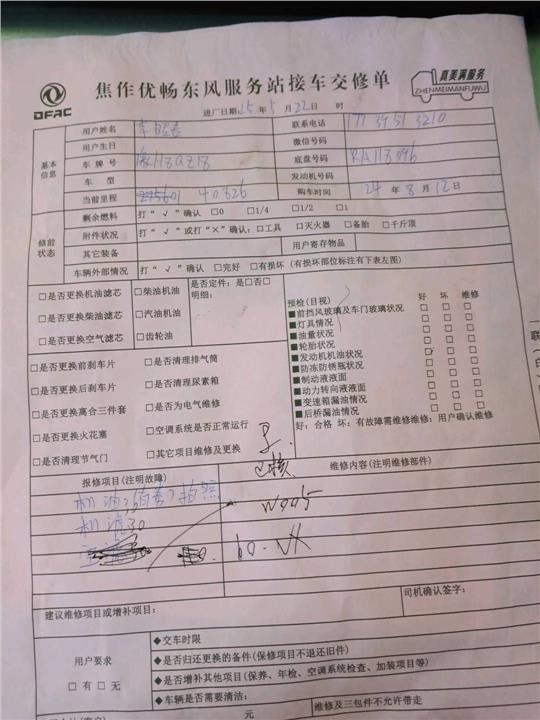 DFAC
焦作优畅东风服务站接车交修单
真美满服务
ZHENMEIMANFUWU
进厂日期25年5月22日 时
基本信息
用户姓名 联系电话 177 3951 3210
用户生日 微信号码
车牌号 底盘号码 RA118096
车型 发动机号码
当前里程 40826 购车时间 24年8月12日
修前状态
剩余燃料 打“√”确认 □0 □1/4 □1/2 □1
附件状况 打“√”或打“×”确认:□工具 □灭火器 □备胎 □千斤顶
其它装备 用户寄存物品
车辆外部情况 打“√”确认 □完好 □有损坏 (有损坏部位标注有下表左图)
□是否更换机油滤芯 □柴油机油 是否定件:是□否□
明细:
□是否更换柴油滤芯 □汽油机油
□是否更换空气滤芯 □齿轮油
预检(目视) 好 坏 维修
■前挡风玻璃及车门玻璃状况 □ □ □
■灯具情况 □ □ □
■油量状况 □ □ □
■轮胎状况 □ □ □
■发动机机油状况 □ □ □
■防冻防锈瓶状况 □ □ □
■制动液液面 □ □ □
■动力转向液液面 □ □ □
■变速箱漏油情况 □ □ □
■后桥漏油情况 □ □ □
好:合格 坏:有故障需维修维修:用户确认维修
□是否更换前刹车片 □是否清理排气筒
□是否更换后刹车片 □是否清理尿素箱
□是否更换离合三件套 □是否为电气维修
□是否更换火花塞 □空调系统是否正常运行
□是否清理节气门 □其它项目维修及更换
报修项目(注明故障) 维修内容(注明维修部件)
机油
机滤30
建议维修项目或增补项目: 司机确认签字:
用户要求
□有□无
◆交车时限
◆是否归还更换的备件(保修项目不退还旧件)
◆是否增补其他项目(保养、年检、空调系统检查、加装项目等)
◆车辆是否需要清洁:
元 维修及三包件不允许带走